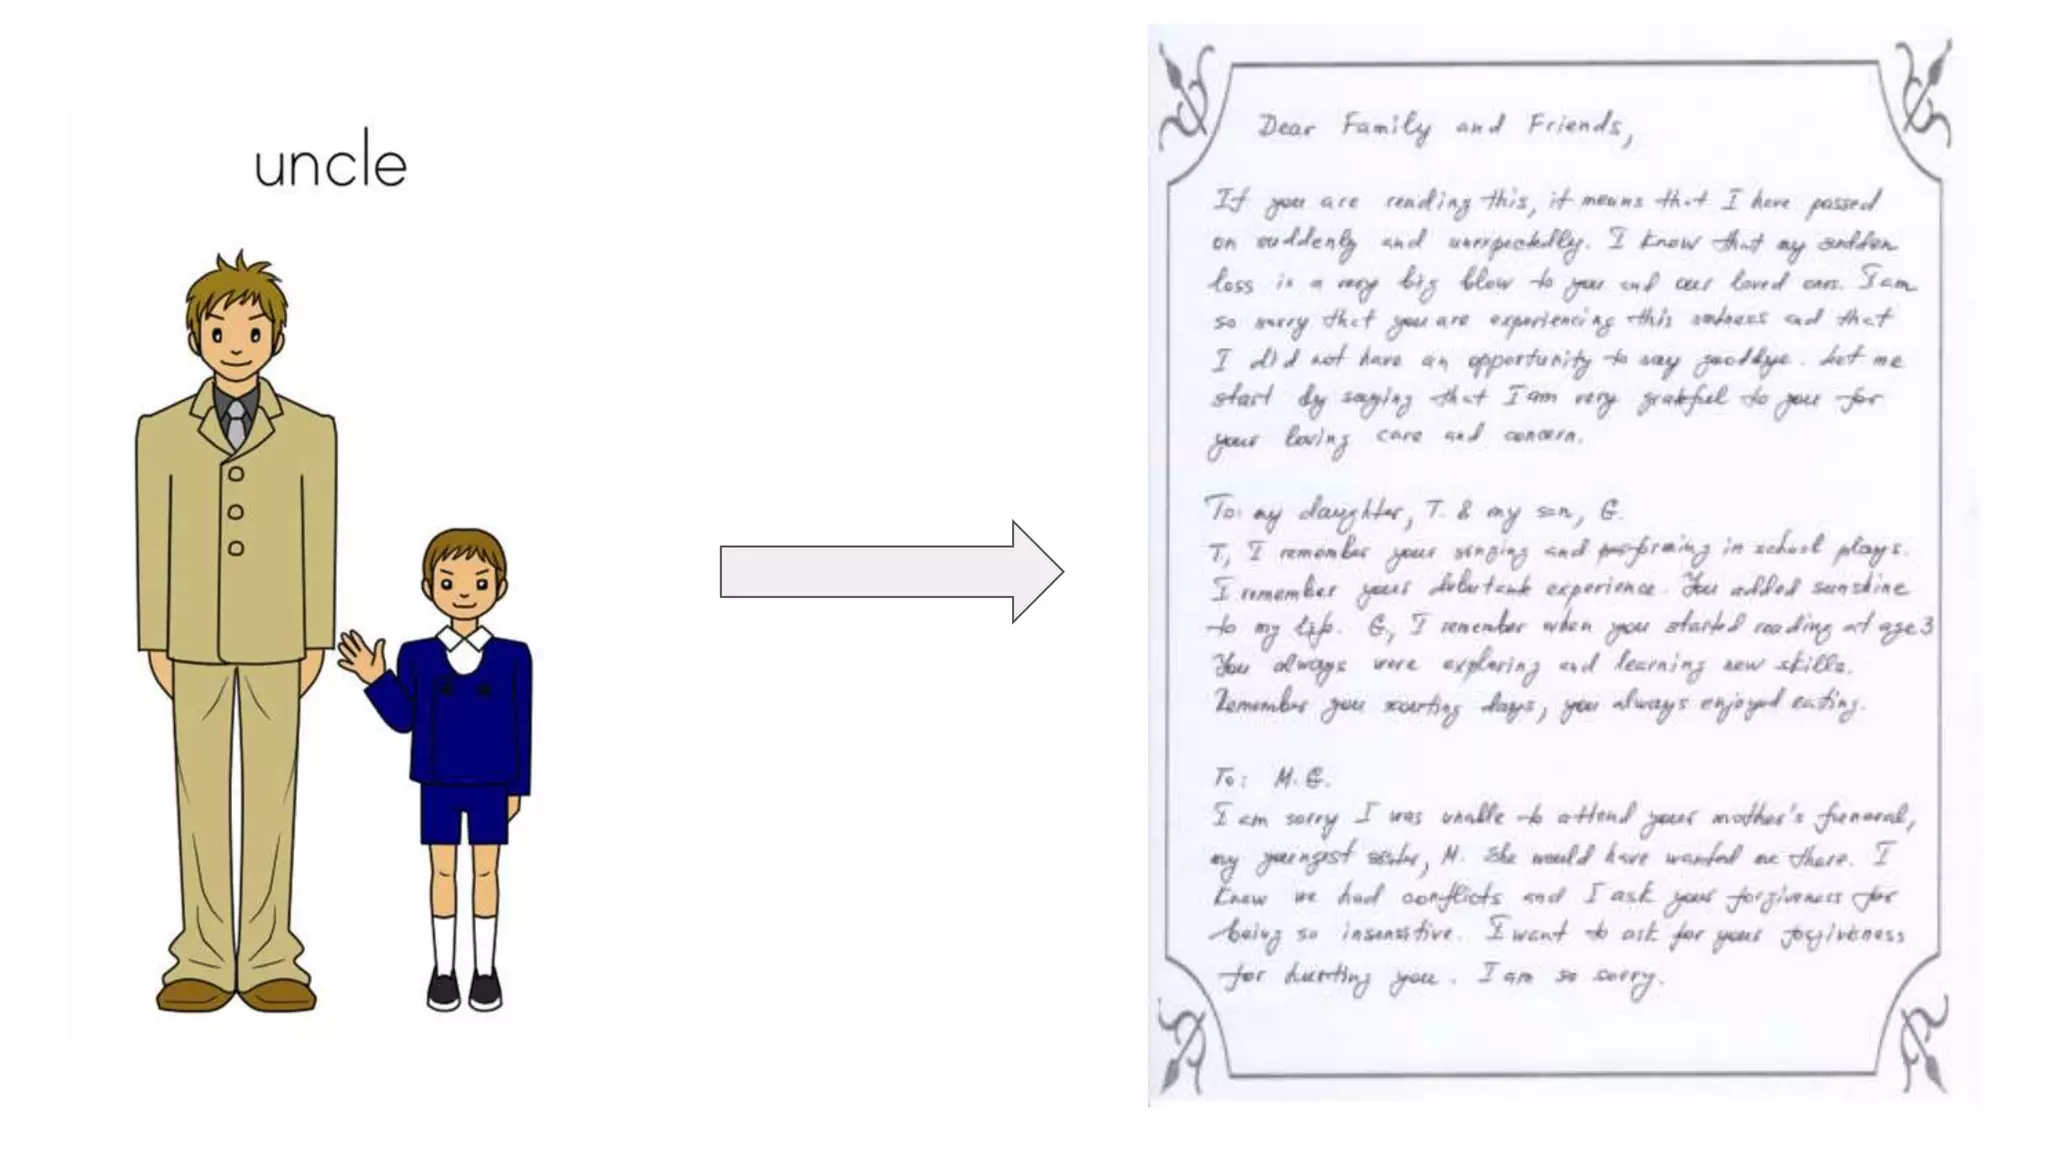 uncle
Dear Family and Friends,
If you are reading this, it means that I have passed
on suddenly and unexpectedly. I know that my sudden
loss is a very big blow to you and our loved ones. I am
so sorry that you are experiencing this sadness and that
I did not have an opportunity to say goodbye. Let me
start by saying that I am very grateful to you for
your loving care and concern.
To: my daughter, T. & my son, G.
T., I remember your singing and performing in school plays.
I remember your debutante experience. You added sunshine
to my life. G., I remember when you started reading at age 3
You always were exploring and learning new skills.
Remember you scouting days, you always enjoyed eating.
To: M.G.
I am sorry I was unable to attend your mother's funeral,
my youngest sister, M. She would have wanted me there. I
know we had conflicts and I ask your forgiveness for
being so insensitive. I want to ask for your forgiveness
for hurting you. I am so sorry.